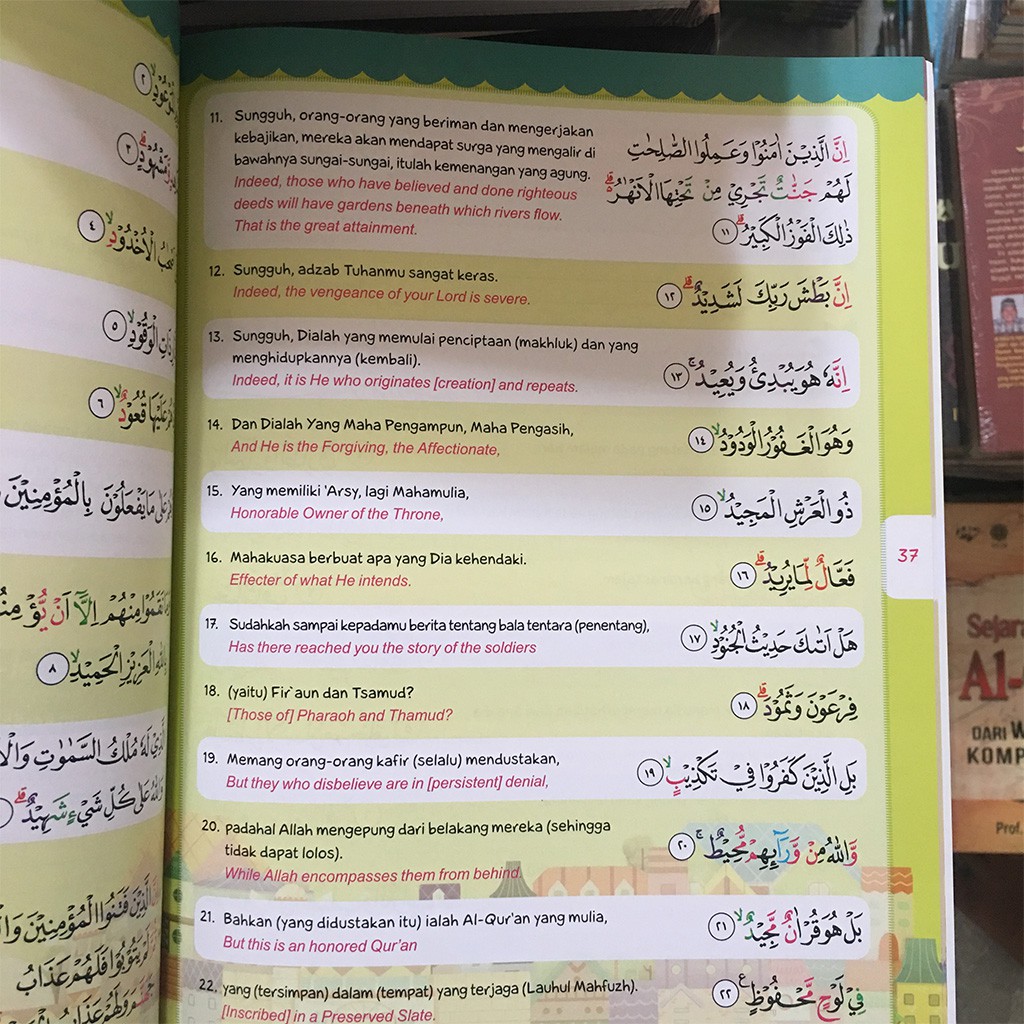 11. Sungguh, orang-orang yang beriman dan mengerjakan
kebajikan, mereka akan mendapat surga yang mengalir di
bawahnya sungai-sungai, itulah kemenangan yang agung.
Indeed, those who have believed and done righteous
deeds will have gardens beneath which rivers flow.
That is the great attainment.
اِنَّ الَّذِيْنَ اٰمَنُوْا وَعَمِلُوا الصّٰلِحٰتِ
لَهُمْ جَنّٰتٌ تَجْرِيْ مِنْ تَحْتِهَا الْاَنْهٰرُ ۗ
ذٰلِكَ الْفَوْزُ الْكَبِيْرُ ۗ ١١
12. Sungguh, adzab Tuhanmu sangat keras.
Indeed, the vengeance of your Lord is severe.
اِنَّ بَطْشَ رَبِّكَ لَشَدِيْدٌ ۗ ١٢
13. Sungguh, Dialah yang memulai penciptaan (makhluk) dan yang
menghidupkannya (kembali).
Indeed, it is He who originates [creation] and repeats.
اِنَّهٗ هُوَ يُبْدِئُ وَيُعِيْدُ ۚ ١٣
14. Dan Dialah Yang Maha Pengampun, Maha Pengasih,
And He is the Forgiving, the Affectionate,
وَهُوَ الْغَفُوْرُ الْوَدُوْدُ ۙ ١٤
15. Yang memiliki 'Arsy, lagi Mahamulia,
Honorable Owner of the Throne,
ذُو الْعَرْشِ الْمَجِيْدُ ۙ ١٥
16. Mahakuasa berbuat apa yang Dia kehendaki.
Effecter of what He intends.
فَعَّالٌ لِّمَا يُرِيْدُ ۗ ١٦
17. Sudahkah sampai kepadamu berita tentang bala tentara (penentang),
Has there reached you the story of the soldiers
هَلْ اَتٰىكَ حَدِيْثُ الْجُنُوْدِ ۙ ١٧
18. (yaitu) Fir`aun dan Tsamud?
[Those of] Pharaoh and Thamud?
فِرْعَوْنَ وَثَمُوْدَ ۗ ١٨
19. Memang orang-orang kafir (selalu) mendustakan,
But they who disbelieve are in [persistent] denial,
بَلِ الَّذِيْنَ كَفَرُوْا فِيْ تَكْذِيْبٍ ۙ ١٩
20. padahal Allah mengepung dari belakang mereka (sehingga
tidak dapat lolos).
While Allah encompasses them from behind.
وَّاللّٰهُ مِنْ وَّرَاۤىِٕهِمْ مُّحِيْطٌ ۚ ٢٠
21. Bahkan (yang didustakan itu) ialah Al-Qur'an yang mulia,
But this is an honored Qur'an
بَلْ هُوَ قُرْاٰنٌ مَّجِيْدٌ ۙ ٢١
22. yang (tersimpan) dalam (tempat) yang terjaga (Lauhul Mahfuzh).
[Inscribed] in a Preserved Slate.
فِيْ لَوْحٍ مَّحْفُوْظٍ ࣖ ٢٢
37
٢
٣
الْاُخْدُوْدِ ۙ ٤
الْوَقُوْدِ ۙ ٥
عَلَيْهَا قُعُوْدٌ ۙ ٦
مَا يَفْعَلُوْنَ بِالْمُؤْمِنِيْنَ
مِنْهُمْ اِلَّآ اَنْ
الْعَزِيْزِ الْحَمِيْدِ ۙ ٨
لَهٗ مُلْكُ السَّمٰوٰتِ
عَلٰى كُلِّ شَيْءٍ شَهِيْدٌ ۗ
الَّذِيْنَ فَتَنُوا الْمُؤْمِنِيْنَ
لَمْ يَتُوْبُوْا فَلَهُمْ عَذَابُ
وَلَهُمْ عَذَابُ
DARI
Prof.